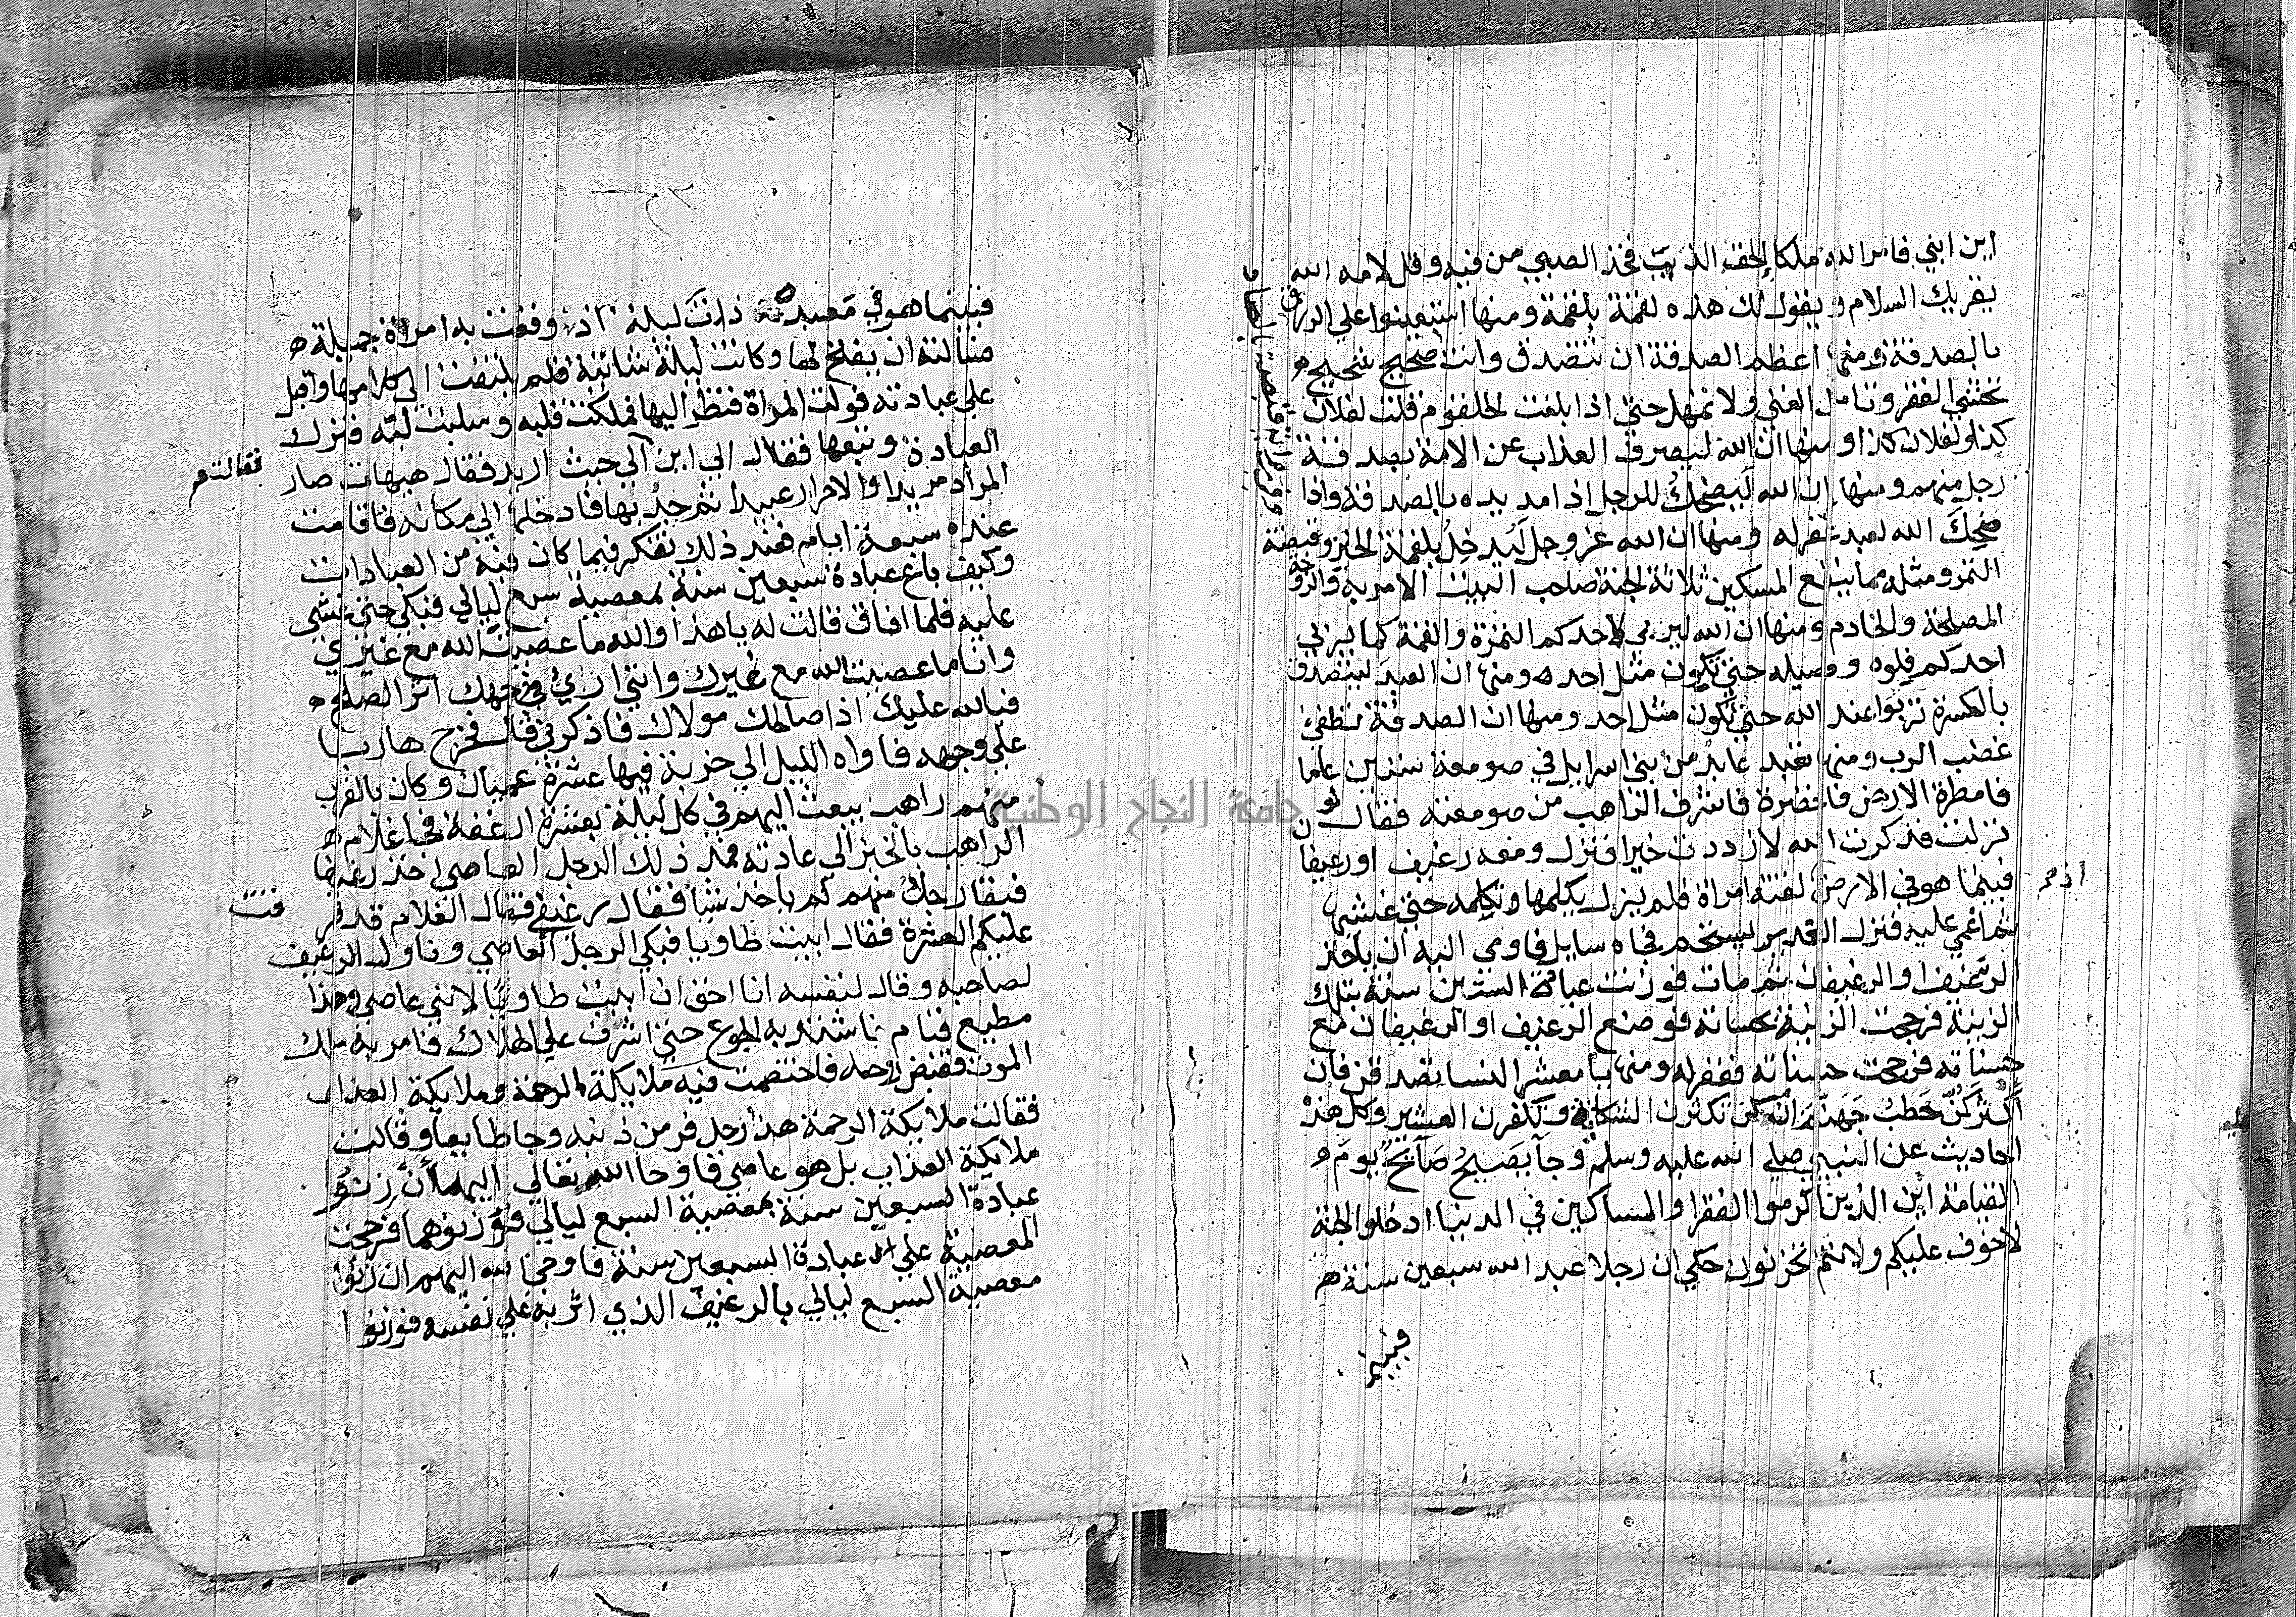 ابن ابني فامر الله ملكا الحق الذيب فخذ الصبي من فيه وقل لامه الله
يقريك السلام ويقول لك هذه لقمة بلقمة ومنها استعينوا علي الرزق
بالصدقة ومنها اعظم الصدقة ان تتصدق وانت صحيح شحيح
تخشي الفقر وتامل الغني ولا تمهل حتي اذا بلغت الحلقوم قلت لفلان
كذا ولفلان كذا ومنها ان الله ليصرف العذاب عن الامة بصدقة
رجل منهم ومنها ان الله ليضحك للرجل اذا مد يده بالصدقة واذا
ضحك الله لعبد غفر له ومنها ان الله عز وجل ليدخل بلقمة الخبز وقبضة
التمر ومثله مما ينفع المسكين ثلاثة الجنة صاحب البيت الامر به والزوجة
المصلحة والخادم ومنها ان الله ليربي لاحدكم التمرة واللقمة كما يربي
احدكم فلوه وفصيله حتي تكون مثل احد ومنها ان العبد ليتصدق
بالكسرة تربوا عند الله حتي تكون مثل احد ومنها ان الصدقة تطفئ
غضب الرب ومنها تعبد عابد من بني اسرايل في صومعة ستين عاما
فامطرة الارض فاخضرة فاشرف الراهب من صومعته فقال لو
نزلت فذكرت الله لازددت خيرا فنزل ومعه رغيف او رغيفان
فبينما هو في الارض لقيته امراة فلم يزل يكلمها وتكلمه حتي غشي
ثم اغمي عليه فنزل الغدير ليستحم فجاه سايل فاومى اليه ان ياخذ
الرغيف او الرغيفان ثم مات فوزنت عبادة الستين سنة بتلك
الزنية فرجحت الزنية بحسناته فوضع الرغيف او الرغيفان مع
حسناته فرجحت حسناته فغفر له ومنها يا معشر النسا تصدقن فان
اكثركن حطب جهنم انكن تكثرن الشكاية وتكفرن العشير وكل هذه
احاديث عن النبي صلي الله عليه وسلم وجا يصيح صايح يوم
القيامة اين الذين اكرموا الفقرا والمساكين في الدنيا ادخلوا الجنة
لا خوف عليكم ولا انتم تحزنون حكي ان رجلا عبد الله سبعين سنة
فبينما
فبينما هو في معبده ذات ليلة اذ وقفت به امراة جميلة
فسالته ان يفتح لها وكانت ليلة شاتية فلم يلتفت الي كلامها واقبل
علي عبادته فولت المراة فنظر اليها فملكت قلبه وسلبت لبه فترك
العبادة وتبعها فقال الي اين الي حيث اريد فقال هيهات صار
فقالت
المراد مريدا والاحرار عبيدا ثم جد بها فادخلها الي مكانه فاقامت
عنده سبعة ايام فعند ذلك تفكر فيما كان فيه من العبادات
وكيف باع عبادة سبعين سنة بمعصية سبع ليالي فبكي حتي غشي
عليه فلما افاق قالت له يا هذا والله ما عصيت الله مع غيري
وانا ما عصيت الله مع غيرك واني اري في وجهك اثر الصلاح
فبالله عليك اذا صالحك مولاك فاذكرني قال فخرج هاربا
علي وجهه فاواه الليل الي خربة فيها عشرة عميان وكان بالقرب
منهم راهب يبعث اليهم في كل ليلة بعشرة ارغفة فجا غلام
الراهب بالخبز الي عادته فمد ذلك الرجل العاصي اخذ رغيفا
فبقا رجل منهم لم ياخذ شيا فقال رغيفي فقال الغلام قد فرقت
عليكم العشرة فقال ابيت طاويا فبكي الرجل العاصي وناول الرغيف
لصاحبه وقال لنفسه انا احق ان ابيت طاويا لانني عاصي وهذا
مطيع فنام فاشتد به الجوع حتي اشرف علي الهلاك فامر الله ملك
الموت فقبض روحه فاختصمت فيه ملايكة الرحمة وملايكة العذاب
فقالت ملايكة الرحمة هذا رجل فر من ذنبه وجا طايعا وقالت
ملايكة العذاب بل هو عاصي فاوحا الله تعالي اليهما ان زنوا
عبادة السبعين سنة بمعصية السبع ليالي فوزنوهما فرجحت
المعصية علي عبادة السبعين سنة فاوحي الله اليهم ان زنوا
معصية السبع ليالي بالرغيف الذي اثر به علي نفسه فوزنوا
جامعة النجاح الوطنية